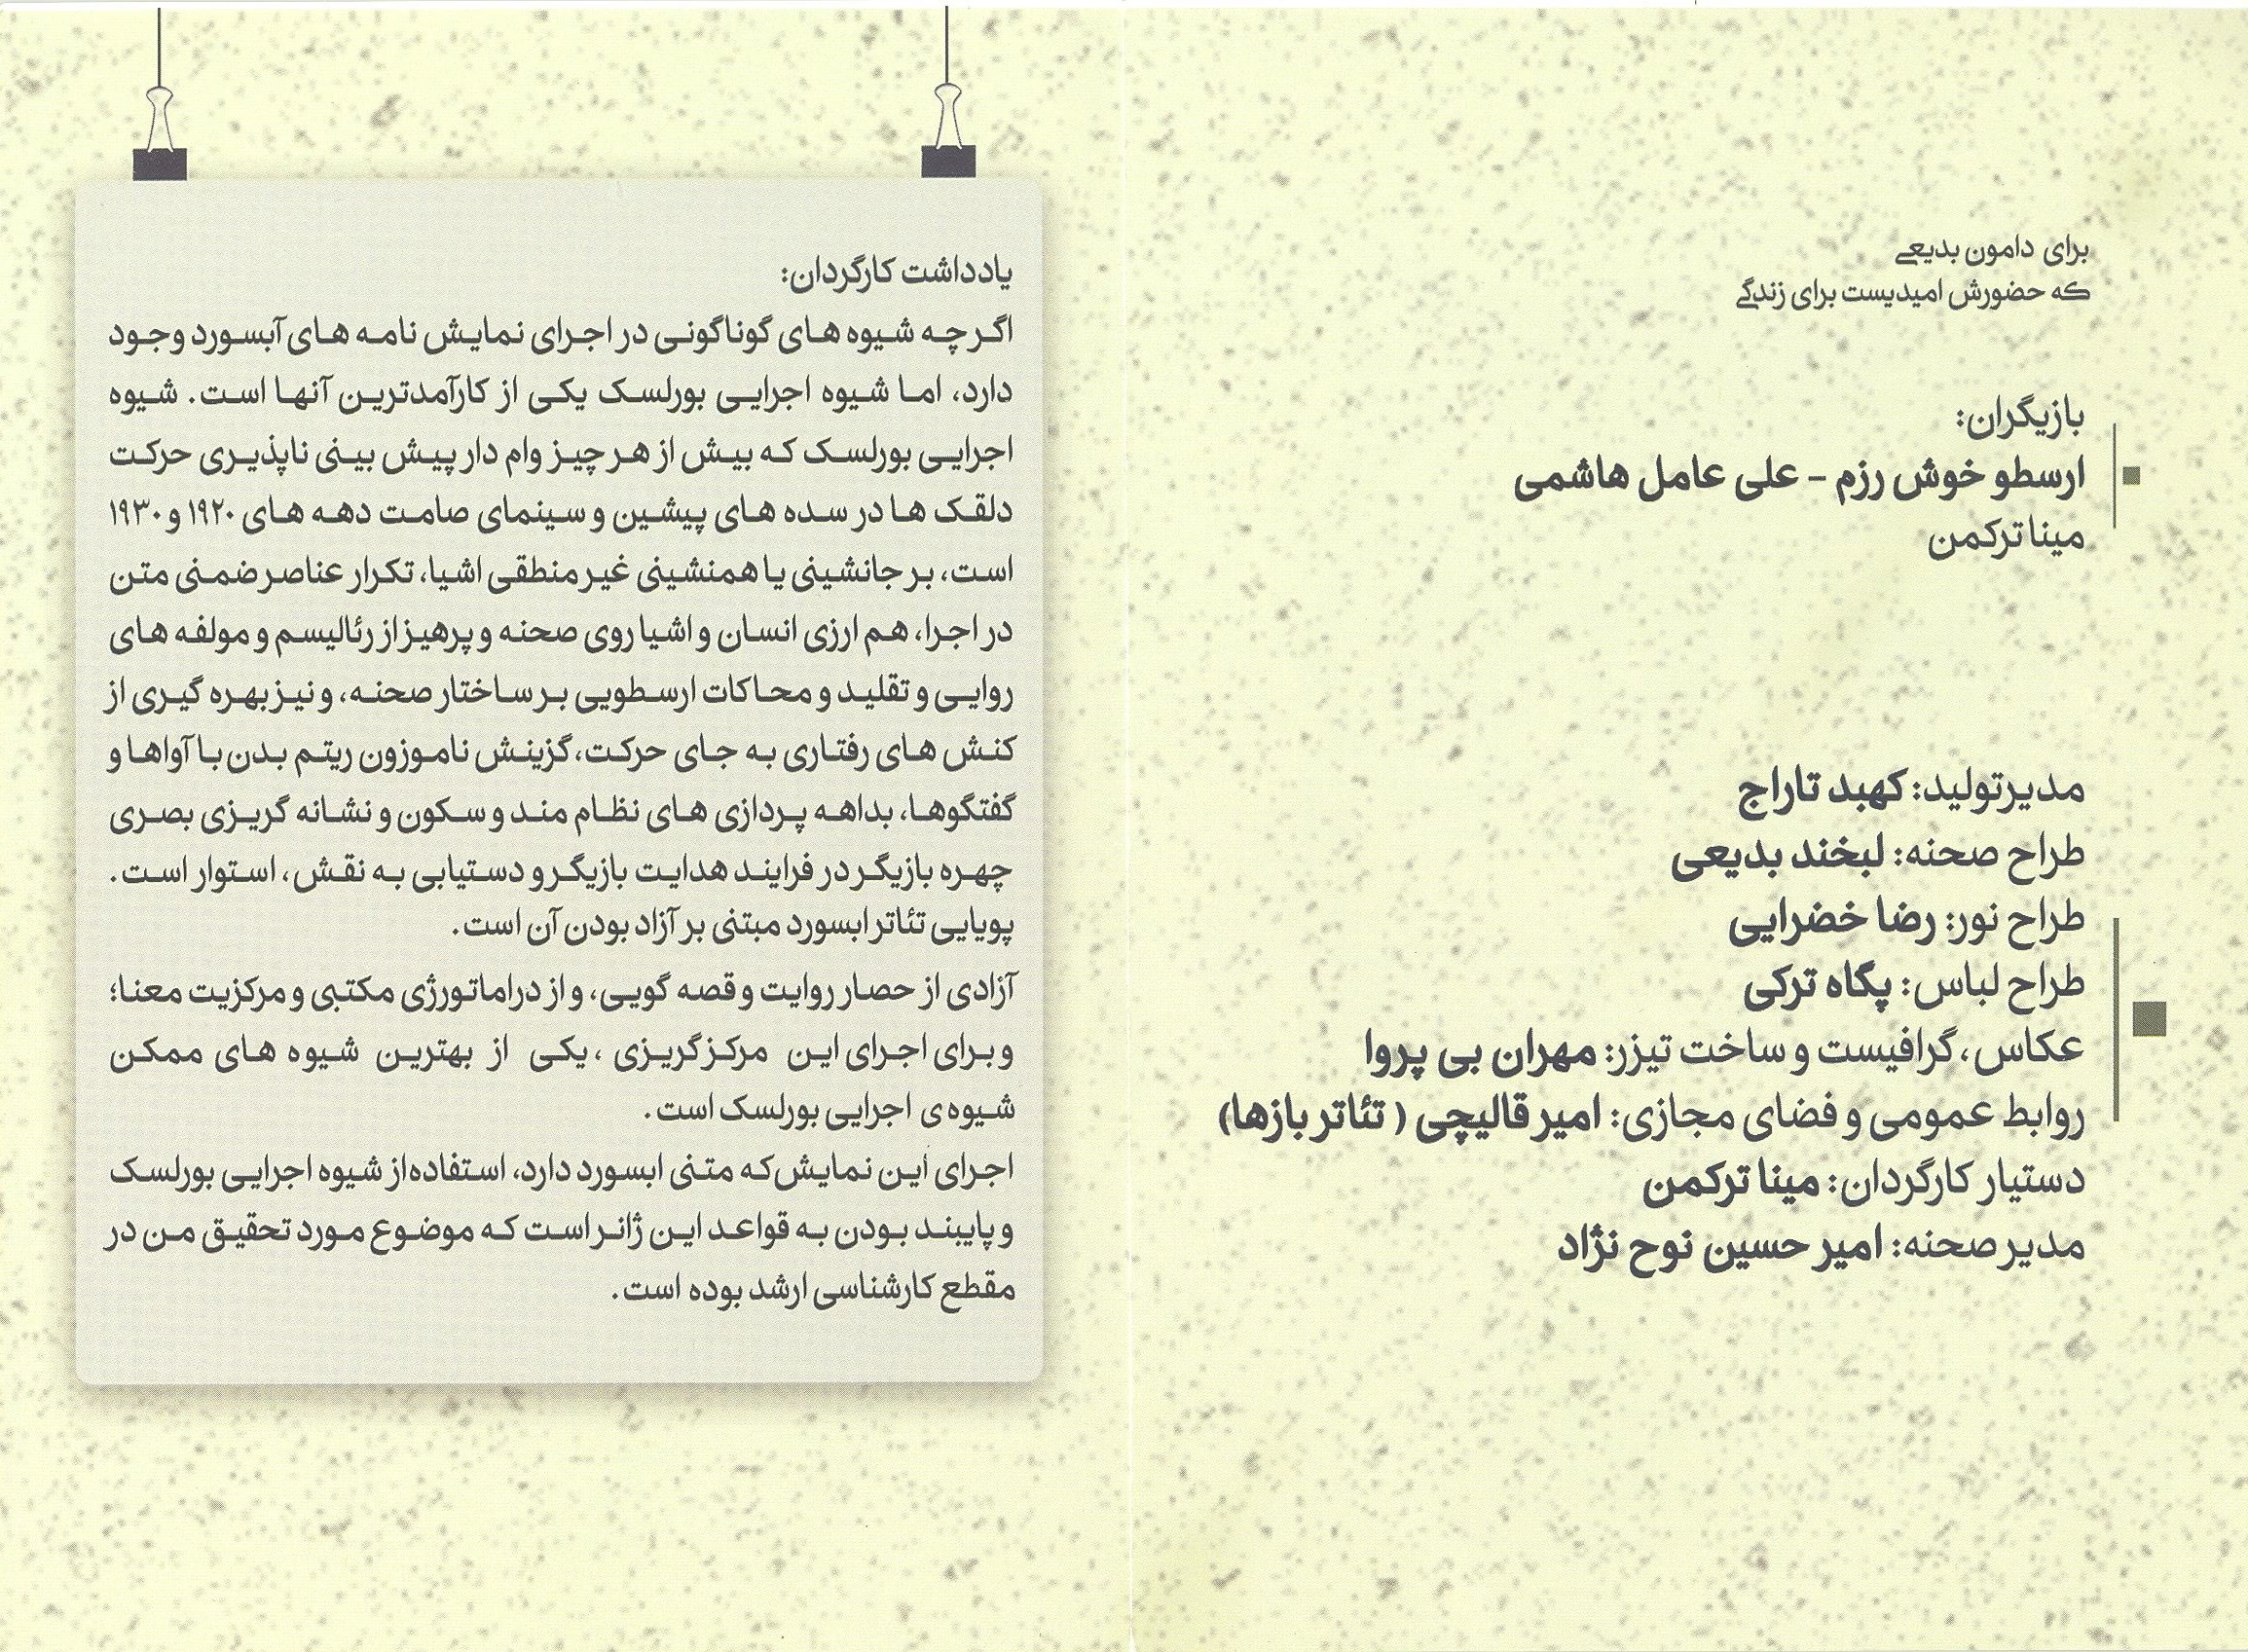 برای دامون بدیعی
که حضورش امیدیست برای زندگی
بازیگران:
ارسطو خوش رزم - علی عامل هاشمی
مینا ترکمن
مدیرتولید: کهبد تاراج
طراح صحنه: لبخند بدیعی
طراح نور: رضا خضرایی
طراح لباس: پگاه ترکی
عکاس، گرافیست و ساخت تیزر: مهران بی پروا
روابط عمومی و فضای مجازی: امیر قالیچی ( تئاتر بازها)
دستیار کارگردان: مینا ترکمن
مدیر صحنه: امیر حسین نوح نژاد
یادداشت کارگردان:
اگر چه شیوه های گوناگونی در اجرای نمایش نامه های آبسورد وجود
دارد، اما شیوه اجرایی بورلسک یکی از کارآمدترین آنها است. شیوه
اجرایی بورلسک که بیش از هر چیز وام دار پیش بینی ناپذیری حرکت
دلقک ها در سده های پیشین و سینمای صامت دهه های ۱۹۲۰ و ۱۹۳۰
است، بر جانشینی یا همنشینی غیر منطقی اشیا، تکرار عناصر ضمنی متن
در اجرا، هم ارزی انسان و اشیا روی صحنه و پرهیز از رئالیسم و مولفه های
روایی و تقلید و محاکات ارسطویی بر ساختار صحنه، و نیز بهره گیری از
کنش های رفتاری به جای حرکت، گزینش ناموزون ریتم بدن با آواها و
گفتگوها، بداهه پردازی های نظام مند و سکون و نشانه گریزی بصری
چهره بازیگر در فرایند هدایت بازیگر و دستیابی به نقش، استوار است.
پویایی تئاتر ابسورد مبتنی بر آزاد بودن آن است.
آزادی از حصار روایت و قصه گویی، و از دراماتورژی مکتبی و مرکزیت معنا؛
و برای اجرای این مرکز گریزی ، یکی از بهترین شیوه های ممکن
شیوه ی اجرایی بورلسک است.
اجرای این نمایش که متنی ابسورد دارد، استفاده از شیوه اجرایی بورلسک
و پایبند بودن به قواعد این ژانر است که موضوع مورد تحقیق من در
مقطع کارشناسی ارشد بوده است.